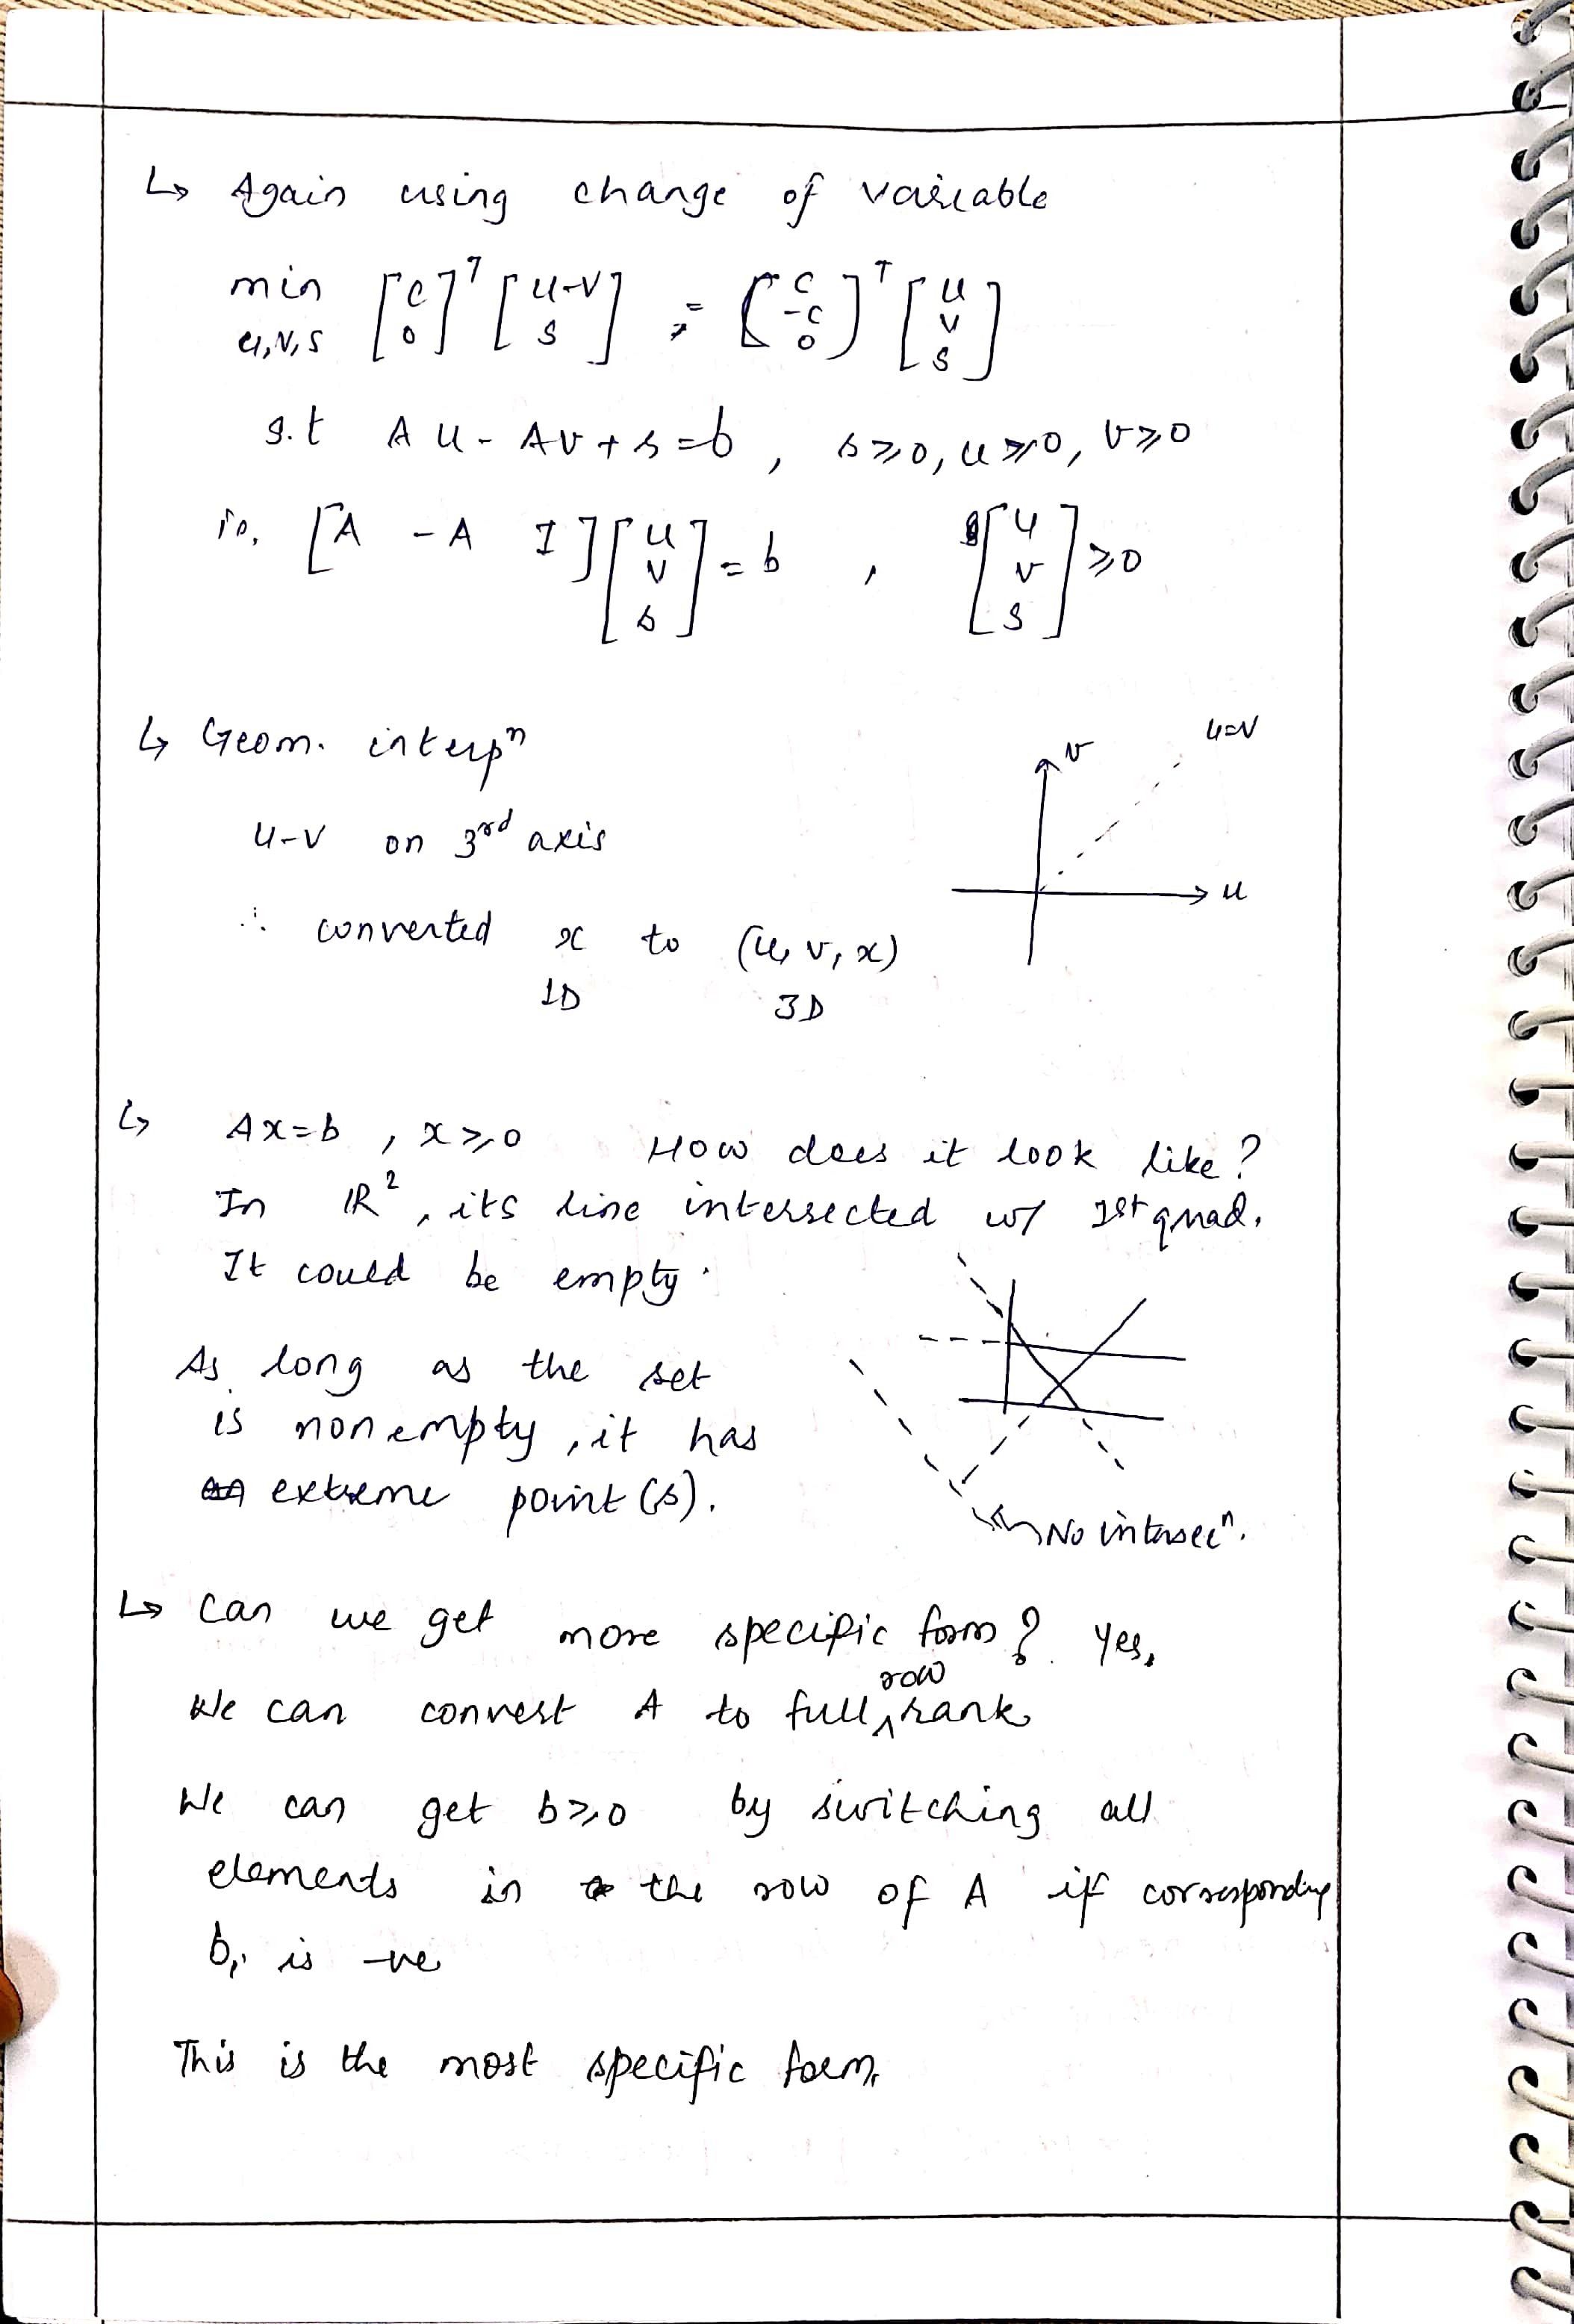 ↳ Again using change of variable
min u,v,s [c 0]ᵀ [u-v s] = [c -c 0]ᵀ [u v s]
s.t Au - Av + s = b , s ≥ 0, u ≥ 0, v ≥ 0
ie, [A -A I] [u v s] = b , [u v s] ≥ 0
↳ Geom. interpⁿ
v
u=v
u
u-v on 3rd axis
∴ converted x to (u, v, x)
1D 3D
↳ Ax=b , x ≥ 0 How does it look like?
In ℝ², its line intersected w/ 1st quad.
It could be empty.
As long as the set
is nonempty, it has
extreme point(s).
No intersecⁿ.
↳ Can we get more specific form? Yes,
We can convert A to full row rank
We can get b ≥ 0 by switching all
elements in the row of A if corresponding
bᵢ is -ve
This is the most specific form.